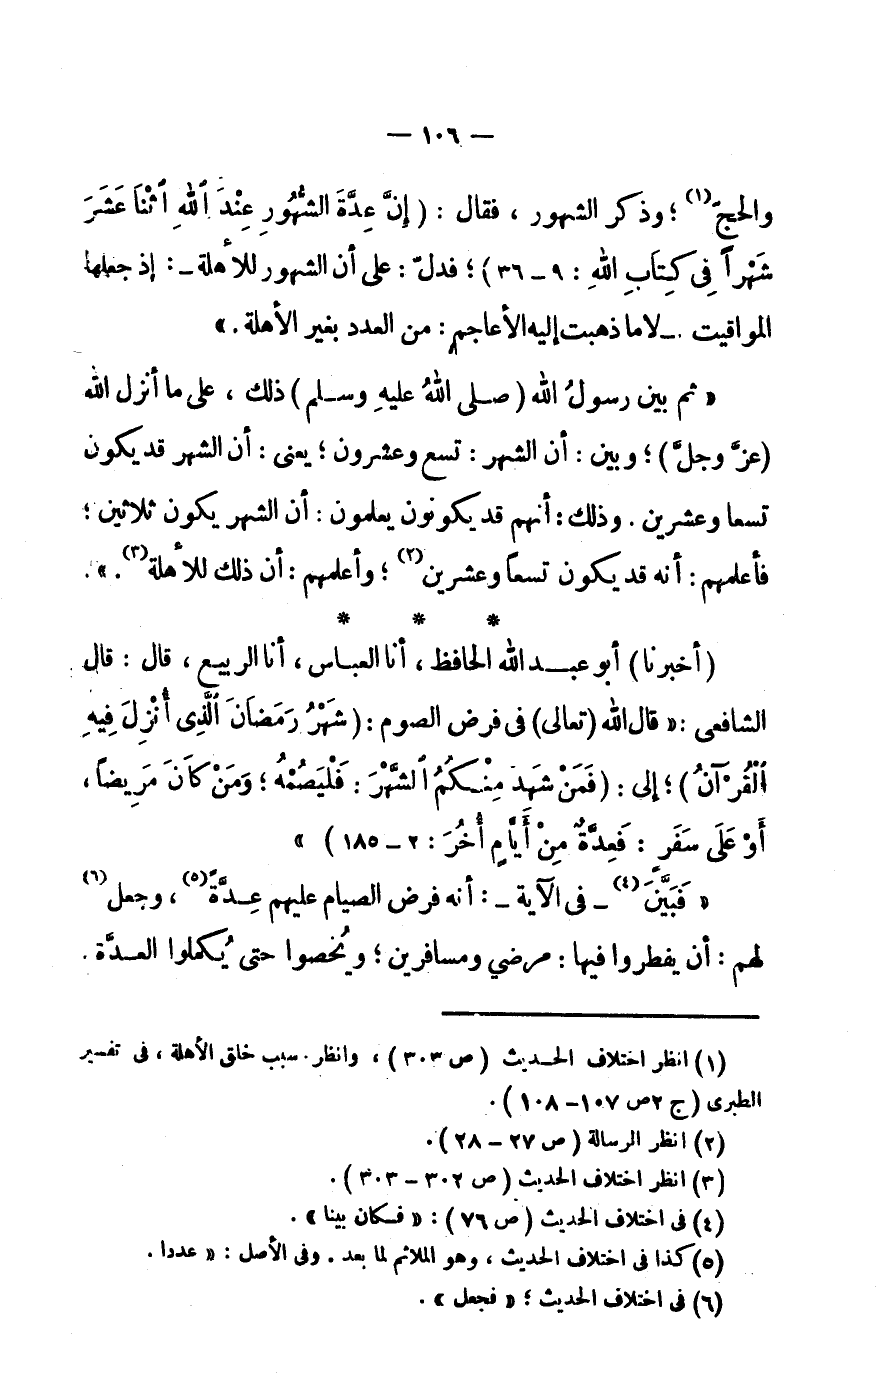 — ١٠٦ —
والحجّ(١)؛ وذكر الشهور ، فقال : ( إِنَّ عِدَّةَ الشُّهُورِ عِنْدَ ٱللهِ ٱثْنَا عَشَرَ
شَهْراً فِى كِتَابِ اللهِ : ٩ – ٣٦ )؛ فدلّ : على أن الشهور للأهلة – : إذ جعلها
المواقيت . – لا ما ذهبت إليه الأعاجم : من العدد بغير الأهلة . »
« ثم بين رسولُ الله ( صلى اللهُ عليهِ وسلم ) ذلك ، على ما أنزل الله
(عزَّ وجلَّ)؛ وبين : أن الشهر : تسع وعشرون ؛ يعنى : أن الشهر قد يكون
تسعا وعشرين . وذلك : أنهم قد يكونون يعلمون : أن الشهر يكون ثلاثين ؛
فأعلمهم : أنه قد يكون تسعاً وعشرين(٢) ؛ وأعلمهم : أن ذلك للأهلة(٣) . » .
* * *
(أخبرنا) أبو عبد الله الحافظ ، أنا العباس ، أنا الربيع ، قال : قال
الشافعى : « قال الله (تعالى) فى فرض الصوم : ( شَهْرُ رَمَضَانَ ٱلَّذِى أُنْزِلَ فِيهِ
ٱلْقُرْآنُ ) ؛ إلى : ( فَمَنْ شَهِدَ مِنْكُمُ ٱلشَّهْرَ : فَلْيَصُمْهُ ؛ وَمَنْ كَانَ مَرِيضاً ،
أَوْ عَلَى سَفَرٍ : فَعِدَّةٌ مِنْ أَيَّامٍ أُخَرَ : ٢ – ١٨٥ ) »
« فَبَيَّنَ(٤) – فى الآية – : أنه فرض الصيام عليهم عِدَّةً(٥) ، وجعل(٦)
لهم : أن يفطروا فيها : مرضي ومسافرين ؛ ويُحصوا حتى يُكملوا العدَّة .
(١) انظر اختلاف الحديث ( ص ٣٠٣ ) ، وانظر . سبب خلق الأهلة ، فى تفسير
الطبرى ( ج ٢ ص ١٠٧ – ١٠٨ ) .
(٢) انظر الرسالة ( ص ٢٧ – ٢٨ ) .
(٣) انظر اختلاف الحديث ( ص ٣٠٢ – ٣٠٣ ) .
(٤) فى اختلاف الحديث ( ص ٧٦ ) : « فكان بينا » .
(٥) كذا فى اختلاف الحديث ، وهو الملائم لما بعد . وفى الأصل : « عددا .
(٦) فى اختلاف الحديث ؛ « فجعل » .